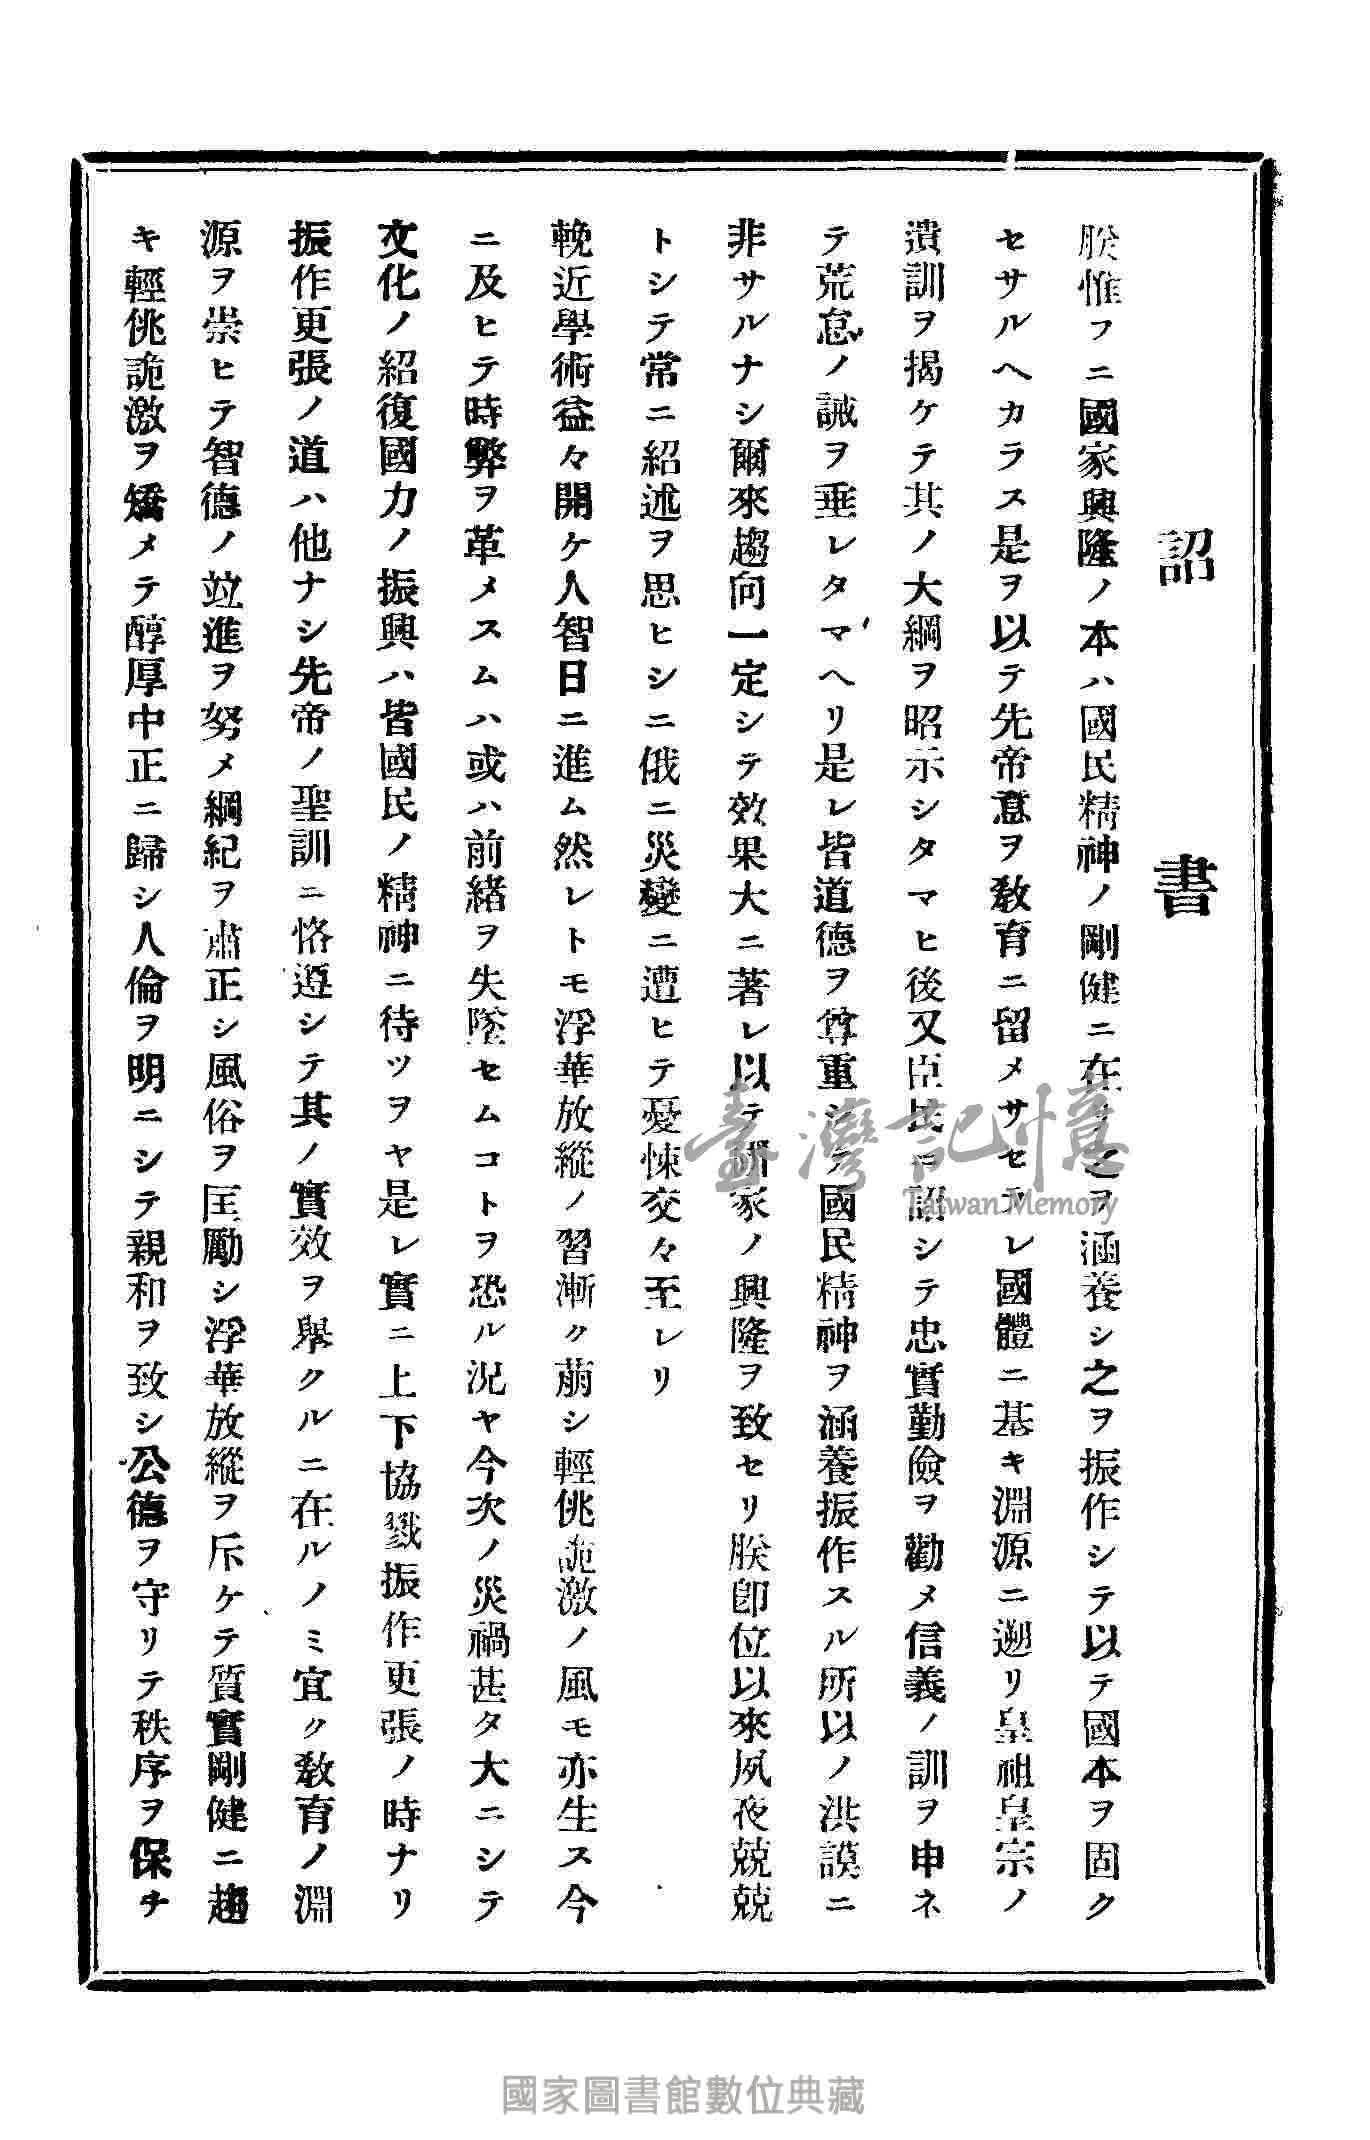 詔書
朕惟フニ國家興隆ノ本ハ國民精神ノ剛健ニ在リ之ヲ涵養シ之ヲ振作シテ以テ國本ヲ固ク
セサルヘカラス是ヲ以テ先帝意ヲ敎育ニ留メサセラレ國體ニ基キ淵源ニ遡リ皇祖皇宗ノ
遺訓ヲ揭ケテ其ノ大綱ヲ昭示シタマヒ後又臣民ニ詔シテ忠實勤儉ヲ勸メ信義ノ訓ヲ申ネ
テ荒怠ノ誡ヲ垂レタマヘリ是レ皆道德ヲ尊重シテ國民精神ヲ涵養振作スル所以ノ洪謨ニ
非サルナシ爾來趨向一定シテ效果大ニ著レ以テ國家ノ興隆ヲ致セリ朕卽位以來夙夜兢兢
トシテ常ニ紹述ヲ思ヒシニ俄ニ災變ニ遭ヒテ憂悚交々至レリ
輓近學術益々開ケ人智日ニ進ム然レトモ浮華放縱ノ習漸ク萠シ輕佻詭激ノ風モ亦生ス今
ニ及ヒテ時弊ヲ革メスムハ或ハ前緖ヲ失墜セムコトヲ恐ル況ヤ今次ノ災禍甚タ大ニシテ
文化ノ紹復國力ノ振興ハ皆國民ノ精神ニ待ツヲヤ是レ實ニ上下協戮振作更張ノ時ナリ
振作更張ノ道ハ他ナシ先帝ノ聖訓ニ恪遵シテ其ノ實效ヲ擧クルニ在ルノミ宜ク敎育ノ淵
源ヲ崇ヒテ智德ノ竝進ヲ努メ綱紀ヲ肅正シ風俗ヲ匡勵シ浮華放縱ヲ斥ケテ質實剛健ニ趨
キ輕佻詭激ヲ矯メテ醇厚中正ニ歸シ人倫ヲ明ニシテ親和ヲ致シ公德ヲ守リテ秩序ヲ保チ
臺灣記憶
Taiwan Memory
國家圖書館數位典藏